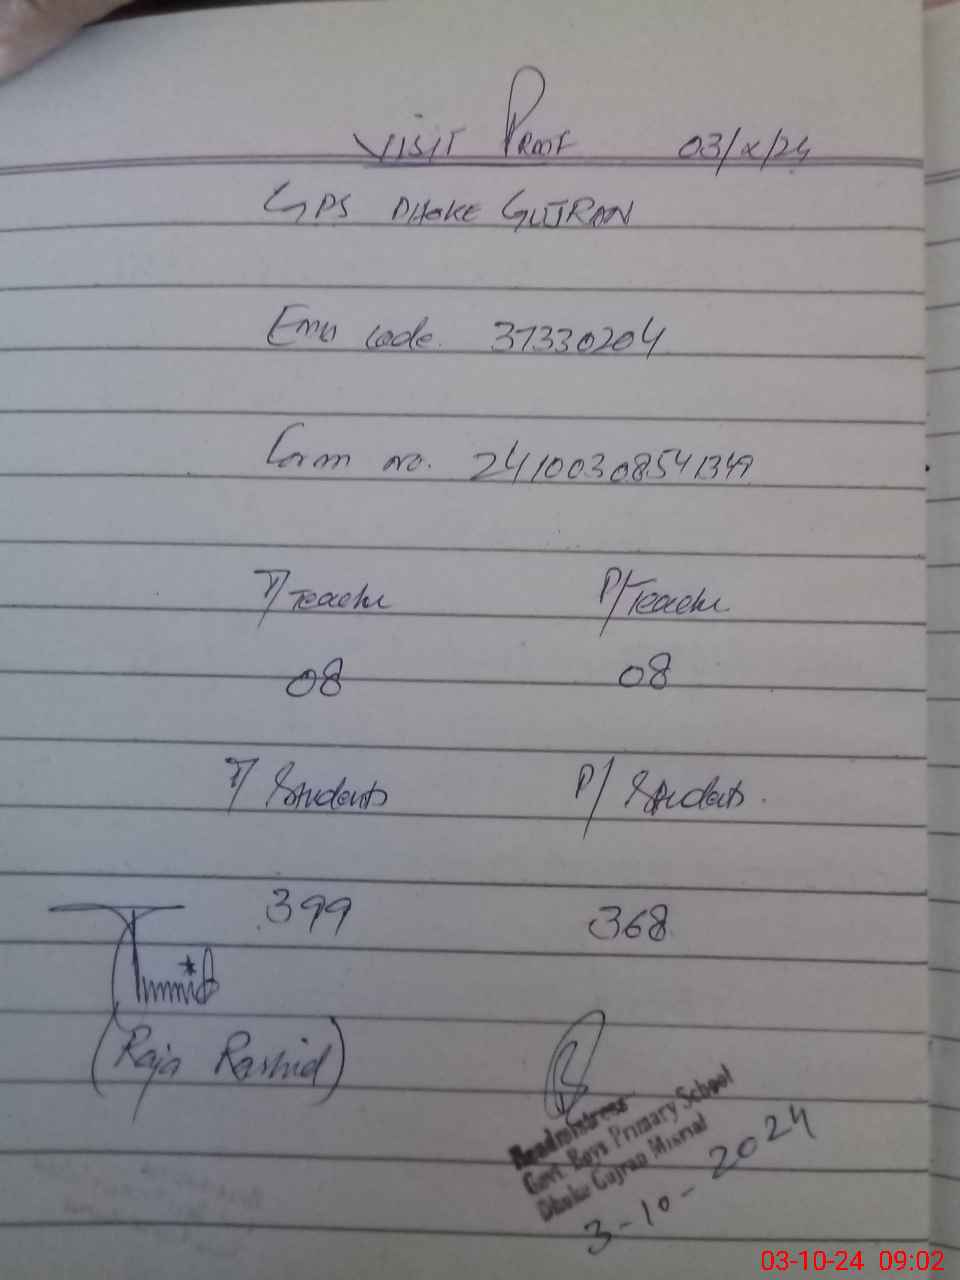 VISIT PROOF 03/X/24
GPS DHOKE GUJRAN
Emis code. 37330204
Form no. 24100308541349
T/Teacher P/Teacher
08 08
T/ Students P/ Students.
399 368
(Raja Rashid)
Headmistress
Govt. Boys Primary School
Dhoke Gujran Misrial
3-10-2024
03-10-24 09:02